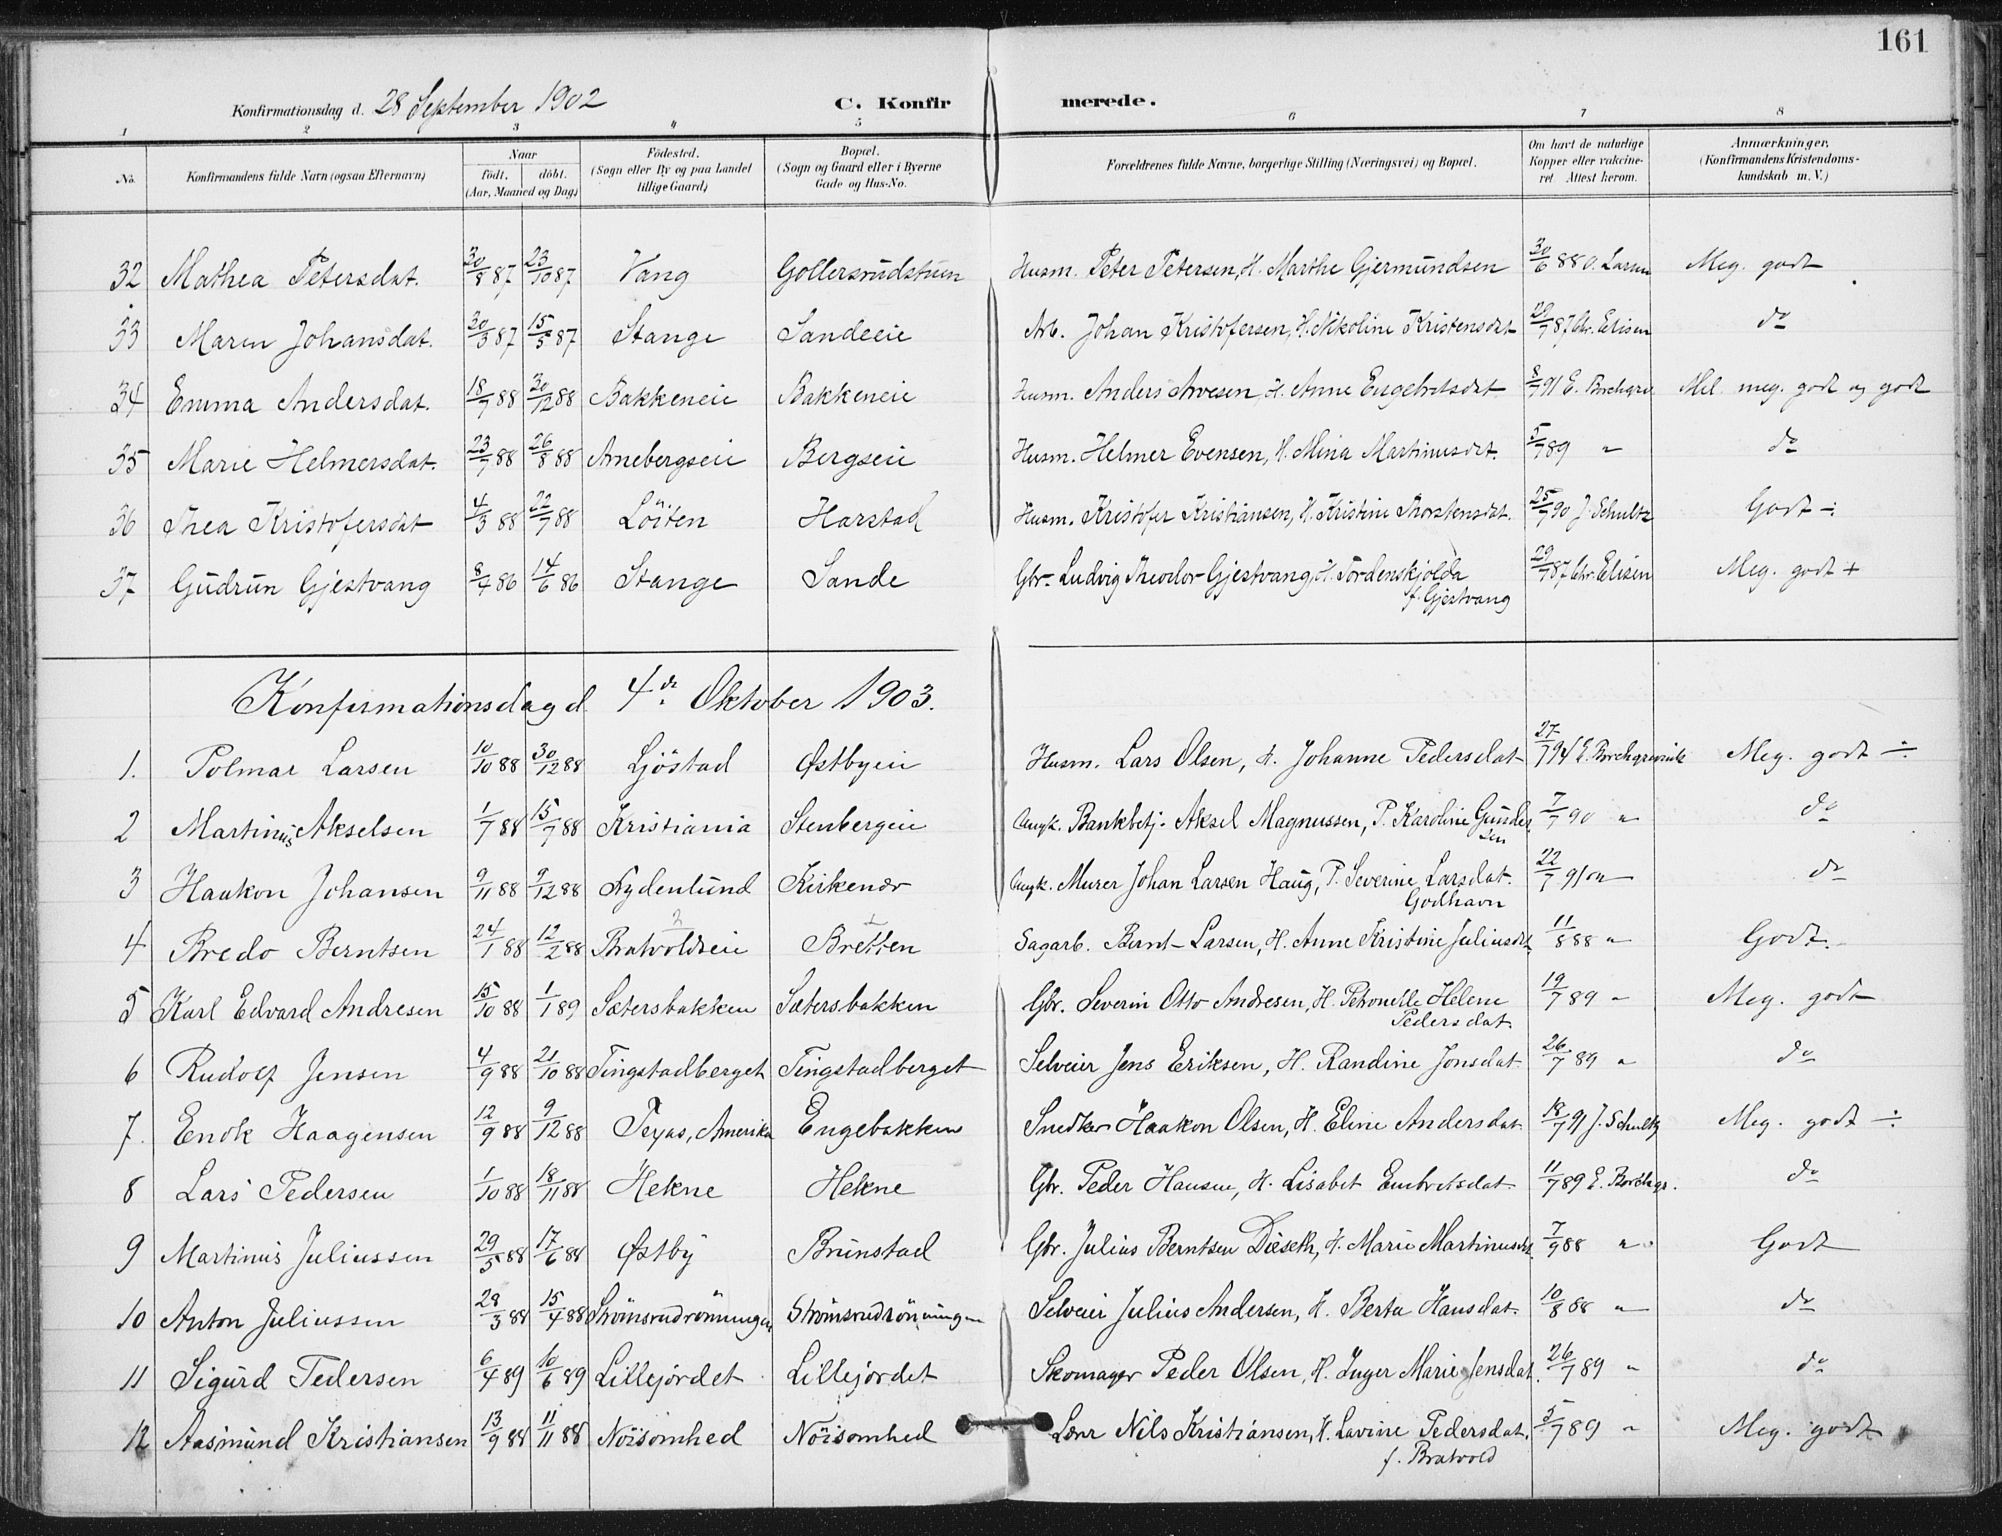 161
Konfirmationsdag d. 28 September 1902 C. Konfirmerede.
1 2 3 4 5 6 7 8
No. Konfirmandens fulde Navn (ogsaa Efternavn) Naar født. døbt. (Aar, Maaned og Dag) Fødested. (Sogn eller By og paa Landet tillige Gaard) Bopæl. (Sogn og Gaard eller i Byerne Gade og Hus-No. Forældrenes fulde Navne, borgerlige Stilling (Næringsvei) og Bopæl. Om havt de naturlige Kopper eller vakcineret Attest herom. Anmærkninger. (Konfirmandens Kristendomskundskab m. V.)
32 Mathea Petersdat. 30/8 87 23/10 87 Vang Gollersrudstuen Husm. Peter Petersen, H. Marthe Gjermundsen 30/6 88 O. Larsen Meg. godt
33 Maren Johansdat. 30/3 87 15/5 87 Stange Sandeeie Arb. Johan Kristofersen, H. Nikoline Kristensdat 29/7 87 Chr. Elisen do
34 Emma Andersdat. 18/7 88 30/12 88 Bakkeneie Bakkeneie Husm. Anders Arvesen, H. Anne Engebretsdat 8/7 91 E. Borchgre Mel. meg. godt og godt
35 Marie Helmersdat. 23/7 88 26/8 88 Arnebergseie Bergseie Husm. Helmer Evensen, H. Mina Martinusdat. 5/7 89 " do
36 Thea Kristofersdat 4/3 88 22/7 88 Löiten Harstad Husm. Kristofer Kristiansen, H. Kristine Thorstensdat. 25/7 90 J. Schultz Godt ÷
37 Gudrun Gjestvang 8/4 86 14/6 86 Stange Sande Gbr. Ludvig Theodor Gjestvang, H. Tordenskjolda 29/7 87 Chr. Elisen Meg. godt +
f. Gjestvang
Konfirmationsdag d. 4de Oktober 1903.
1. Polmar Larsen 10/10 88 30/12 88 Ljöstad Østbyeie Husm. Lars Olsen, H. Johanne Pedersdat 27/7 94 E. Borchgrevink Meg. godt ÷
2 Martinius Akselsen 1/7 88 15/7 88 Kristiania Stenbergeie Ungk. Bankbetj. Aksel Magnussen, P. Karoline Gunder 7/7 90 " do
sen
3 Haakon Johansen 9/11 88 9/12 88 Nydenlund Kirkenær Ungk. Murer Johan Larsen Haug, P. Severine Larsdat. 22/7 91 " do
Godhavn
4 Bredo Berntsen 24/1 88 12/2 88 Bratvoldseie Bretten Sagarb. Bernt Larsen, H. Anne Kristine Juliusdt. 11/8 88 " Godt.
5 Karl Edvard Andresen 15/10 88 1/1 89 Sætersbakken Sætersbakken Gbr. Severin Otto Andresen, H. Petronelle Helene 19/7 89 " Meg. godt
Pedersdat.
6 Rudolf Jensen 4/9 88 21/10 88 Tingstadberget Tingstadberget Selveier Jens Eriksen, H. Randine Jonsdat. 26/7 89 " do
7. Enok Haagensen 12/9 88 9/12 88 Texas, Amerika Engebakken Snedker Haakon Olsen, H. Eline Andersdat. 18/7 91 J. Schultz Meg. godt ÷
8 Lars Pedersen 1/10 88 18/11 88 Hekne Hekne Gbr. Peder Hansen, H. Lisabet Embretsdat. 11/7 89 E. Borchgr. do
9 Martinus Juliussen 29/5 88 17/6 88 Østby Brunstad Gbr. Julius Berntsen Diseth, H. Marie Martinusdt. 7/9 88 " Godt
10 Anton Juliussen 28/3 88 15/4 88 Strömsrudröningen Strömsrudröningen Selveier Julius Andersen, H. Berta Hansdat. 10/8 88 " do
11 Sigurd Pedersen 6/4 89 10/6 89 Lillejordet Lillejordet Skomager Peder Olsen, H. Inger Marie Jensdat. 26/7 89 " do
12 Aasmund Kristiansen 13/9 88 11/11 88 Nöisomhed Nöisomhed Lærer Nils Kristiansen, H. Lavine Pedersdat. 5/7 89 " Meg. godt
f. Bratvold